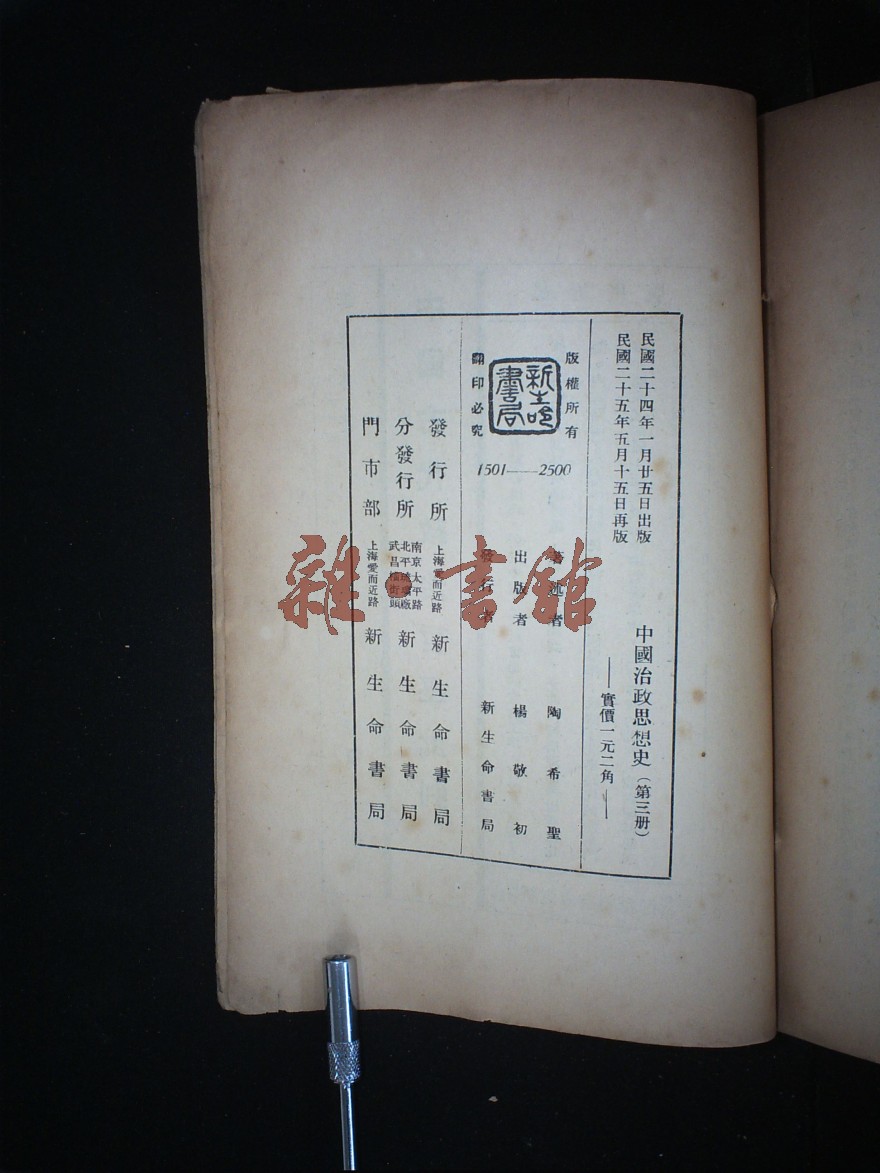 民國二十四年一月廿五日出版
民國二十五年五月十五日再版
中國治政思想史（第三册）
——實價一元二角——
版權所有
新生命書局
翻印必究
1501——2500
著述者 陶希聖
出版者 楊敬初
發行者 新生命書局
發行所 上海愛而近路 新生命書局
分發行所 南京太平路 北平琉璃廠 武昌橫街頭 新生命書局
門市部 上海愛而近路 新生命書局
雜·書館